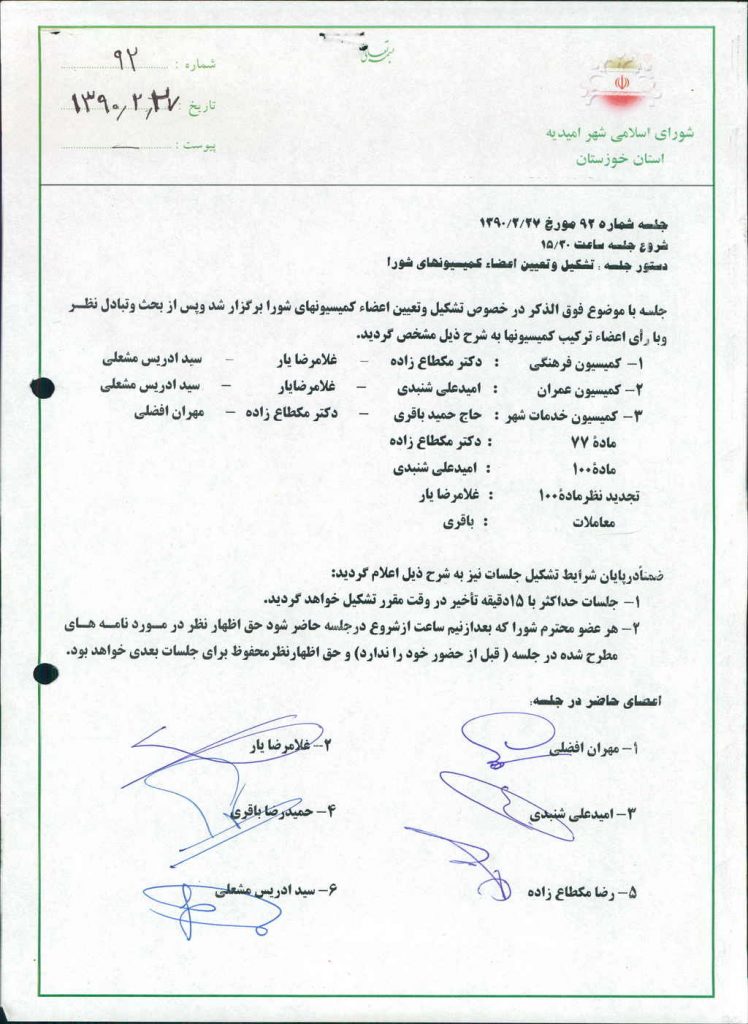 بسمه تعالی
شماره : ۹۲
تاریخ : ۱۳۹۰/۲/۲۷
پیوست : —
شورای اسلامی شهر امیدیه
استان خوزستان
جلسه شماره ۹۲ مورخ ۱۳۹۰/۲/۲۷
شروع جلسه ساعت ۱۵/۳۰
دستور جلسه : تشکیل وتعیین اعضاء کمیسیونهای شورا
جلسه با موضوع فوق الذکر در خصوص تشکیل وتعیین اعضاء کمیسیونهای شورا برگزار شد وپس از بحث وتبادل نظر
وبا رأی اعضاء ترکیب کمیسیونها به شرح ذیل مشخص گردید.
۱- کمیسیون فرهنگی : دکتر مکطاع زاده – غلامرضا یار – سید ادریس مشعلی
۲- کمیسیون عمران : امیدعلی شنبدی – غلامرضایار – سید ادریس مشعلی
۳- کمیسیون خدمات شهر : حاج حمید باقری – دکتر مکطاع زاده – مهران افضلی
مادۀ ۷۷ : دکتر مکطاع زاده
مادۀ ۱۰۰ : امیدعلی شنبدی
تجدید نظرمادۀ ۱۰۰ : غلامرضا یار
معاملات : باقری
ضمناًدرپایان شرایط تشکیل جلسات نیز به شرح ذیل اعلام گردید:
۱- جلسات حداکثر با ۱۵دقیقه تأخیر در وقت مقرر تشکیل خواهد گردید.
۲- هر عضو محترم شورا که بعدازنیم ساعت ازشروع درجلسه حاضر شود حق اظهار نظر در مورد نامه های
مطرح شده در جلسه ( قبل از حضور خود را ندارد) و حق اظهارنظرمحفوظ برای جلسات بعدی خواهد بود.
اعضای حاضر در جلسه:
۱- مهران افضلی ۲- غلامرضا یار
۳- امیدعلی شنبدی ۴- حمیدرضا باقری
۵- رضا مکطاع زاده ۶- سید ادریس مشعلی